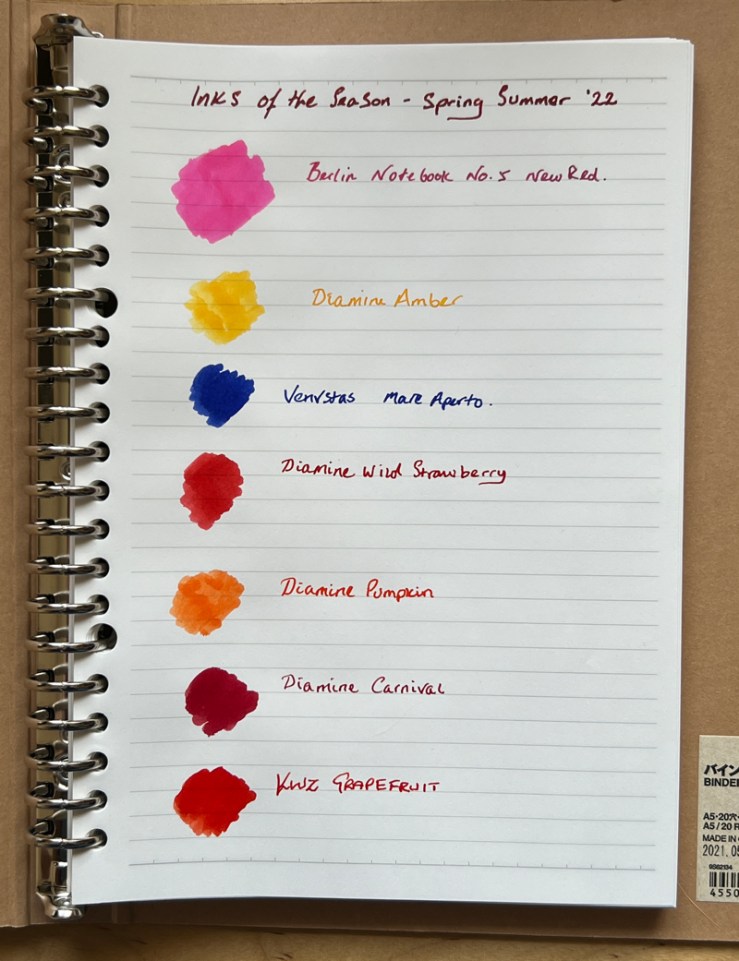 Inks of the Season - Spring Summer '22
Berlin Notebook No. 5 New Red.
Diamine Amber
Venvstas Mare Aperto.
Diamine Wild Strawberry
Diamine Pumpkin
Diamine Carnival
KWZ GRAPEFRUIT
バイン
BINDE
A5・20穴・
A5/20 R
MADE IN
2021.05
4550